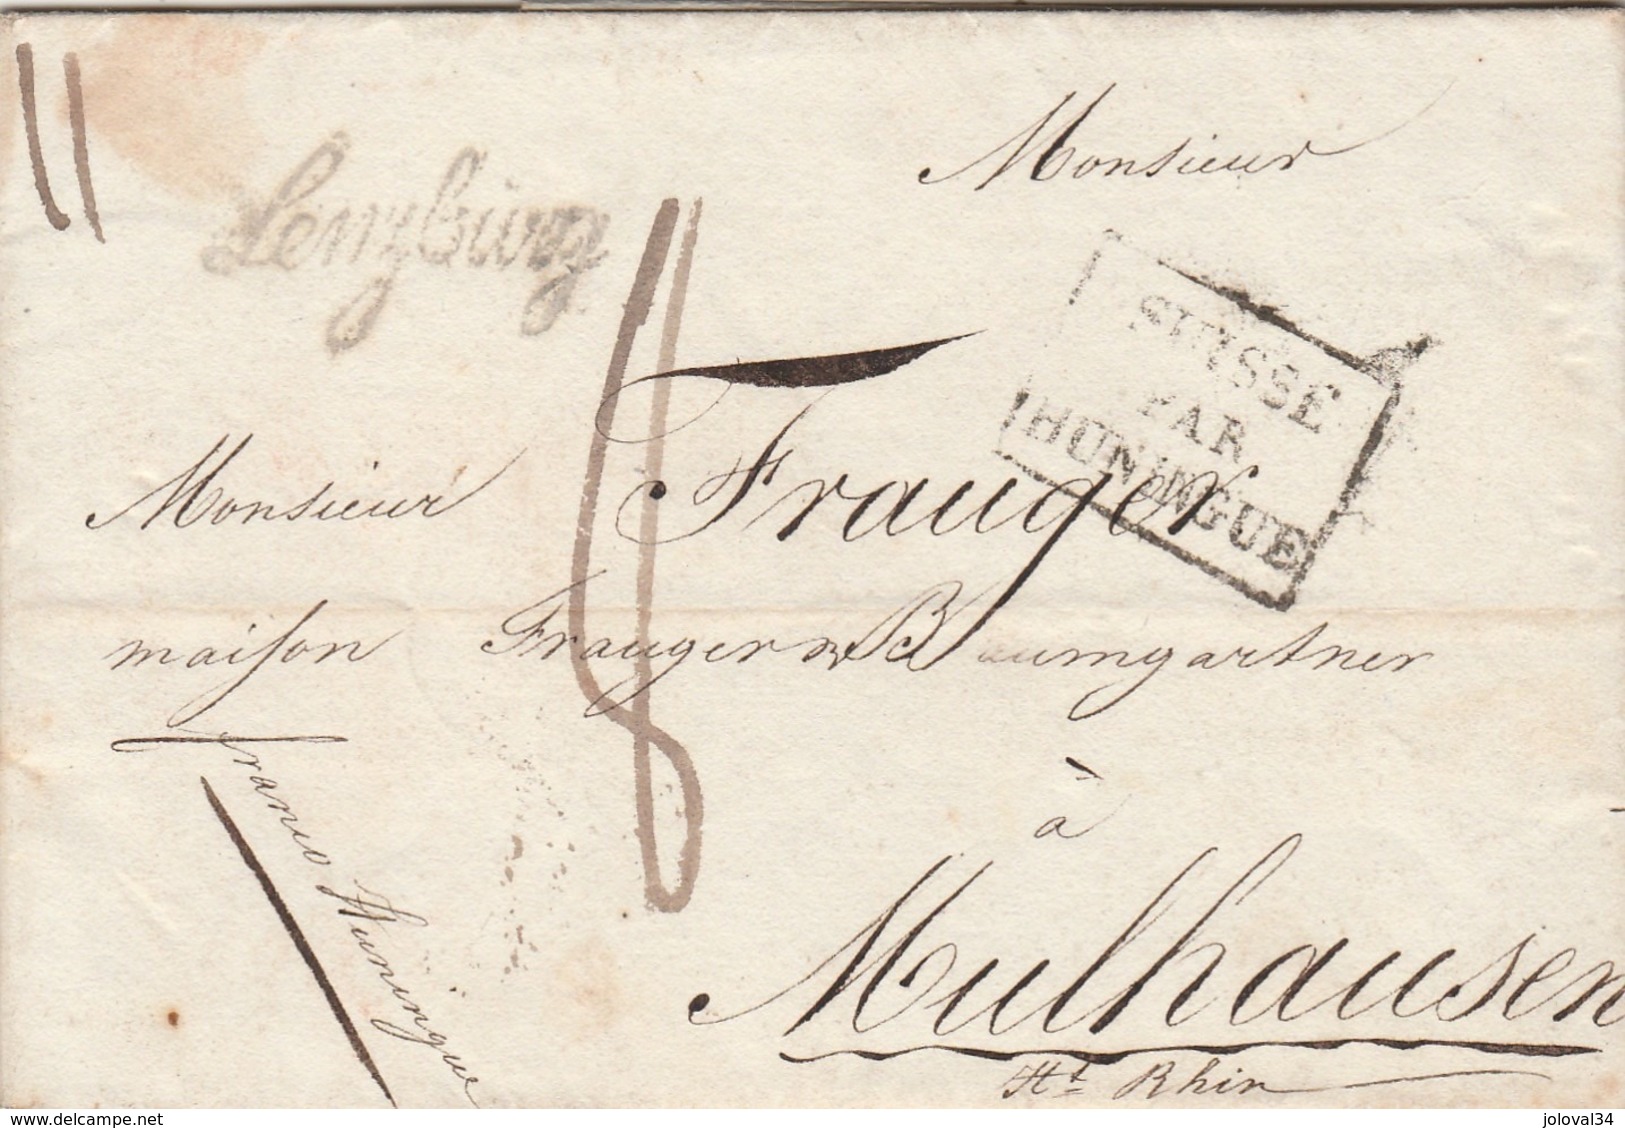 11
Lenzburg
Monsieur
SUISSE
PAR
HUNINGUE
8
Monsieur Frauger
maison Frauger & Baumgartner
franco Huningue
à
Mulhausen
Ht Rhin
joloval34